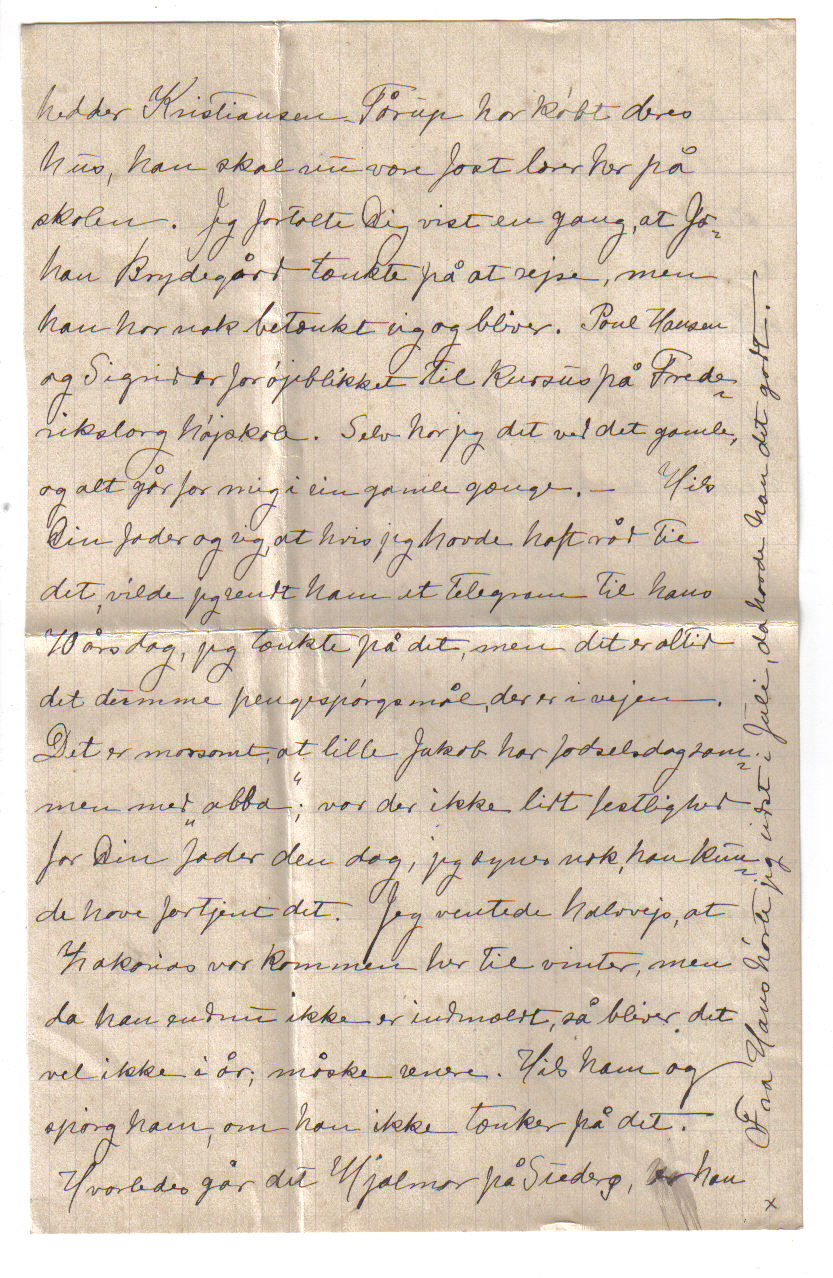 hedder Kristiansen. Tårup har købt deres
hus, han skal nu være fast lærer her på
skolen. Jeg fortalte Dig vist en gang, at Jo-
han Brydegård tænkte på at rejse, men
han har nok betænkt sig og bliver. Poul Hansen
og Sigrid er for øjeblikket til kursus på Frede-
riksborg højskole. Selv har jeg det ved det gamle,
og alt går for mig i sin gamle gænge. — Hils
Din fader og sig, at hvis jeg havde haft råd til
det, vilde jeg sendt ham et telegram til hans
70 årsdag, jeg tænkte på det, men det er altid
det dumme pengespørgsmål, der er i vejen.
Det er morsomt, at lille Jakob har fødselsdag sam-
men med „abba“; var der ikke lidt festlighed
for Din fader den dag, jeg synes nok, han kun-
de have fortjent det. Jeg ventede halvvejs, at
Zakarias var kommen her til vinter, men
da han endnu ikke er indmældt, så bliver det
vel ikke i år; måske senere. Hils ham og
spørg ham, om han ikke tænker på det.
Hvorledes går det Hjalmar på Suderø, er han
Fra Hans hørte jeg sidst i Juli, da havde han det godt.
x